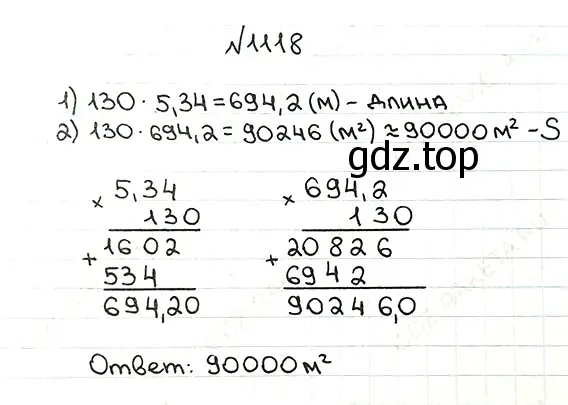 №1118
1) 130 · 5,34 = 694,2 (м) - длина
2) 130 · 694,2 = 90246 (м²) ≈ 90000 м² - S
gdz.top
× 5,34
130
+ 1602
534
694,20
× 694,2
130
+ 20826
6942
90246,0
Ответ: 90000 м²